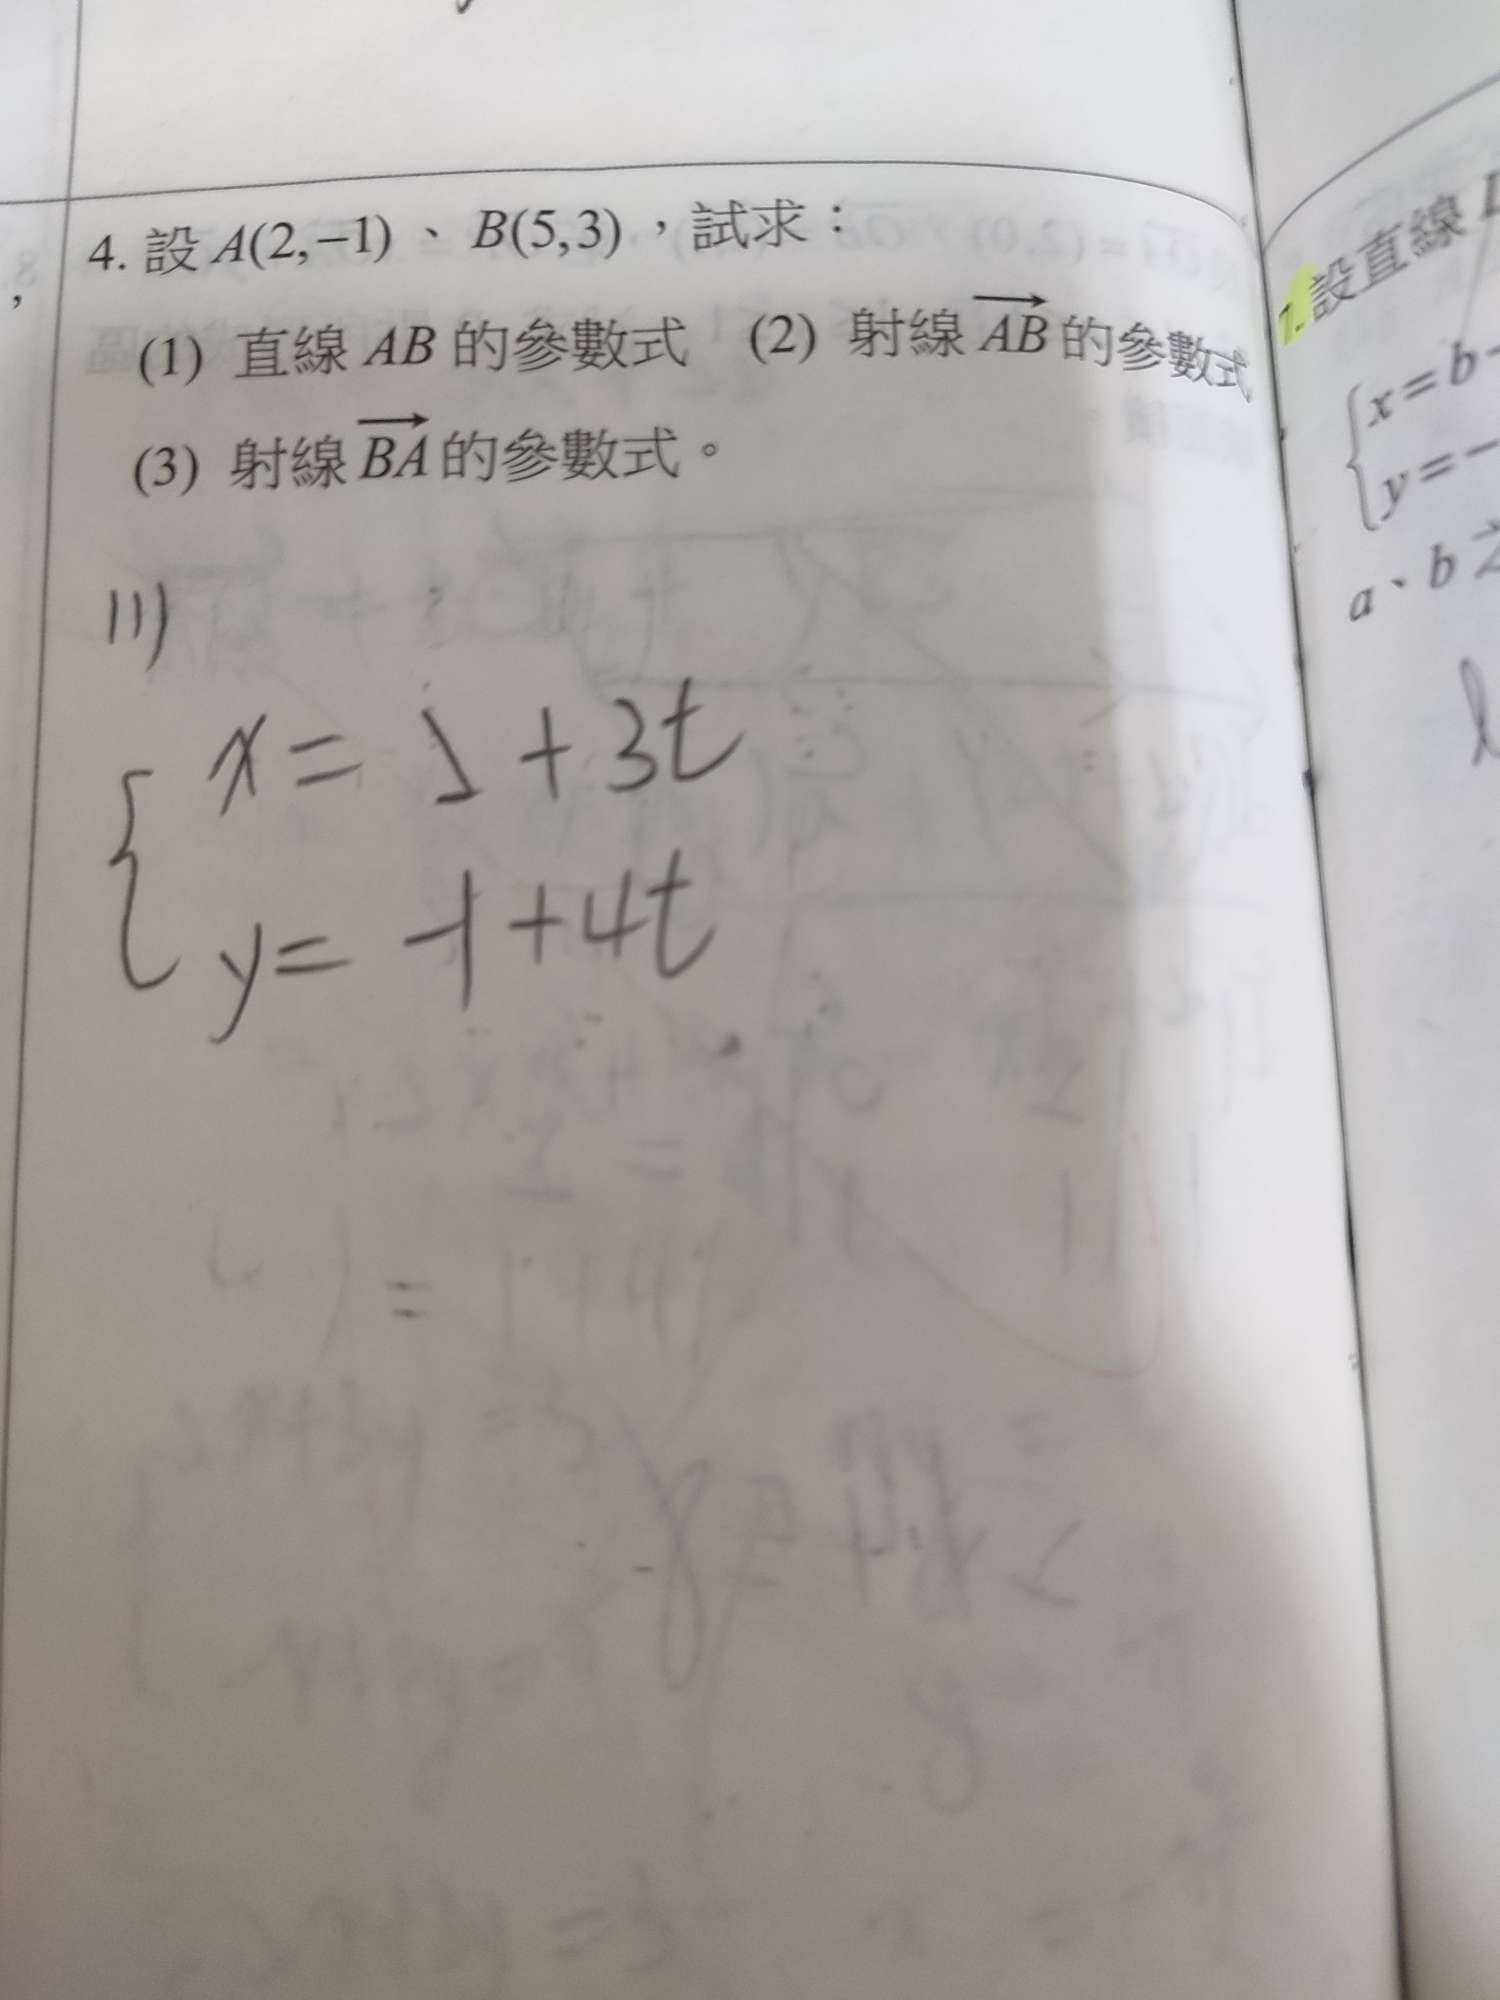 4. 設 A(2,−1)、B(5,3),試求:
(1) 直線 AB 的參數式 (2) 射線 AB 的參數式
(3) 射線 BA 的參數式。
(1)
x = 2 + 3t
y = -1 + 4t
7. 設直線
x = b
y = −
a、b